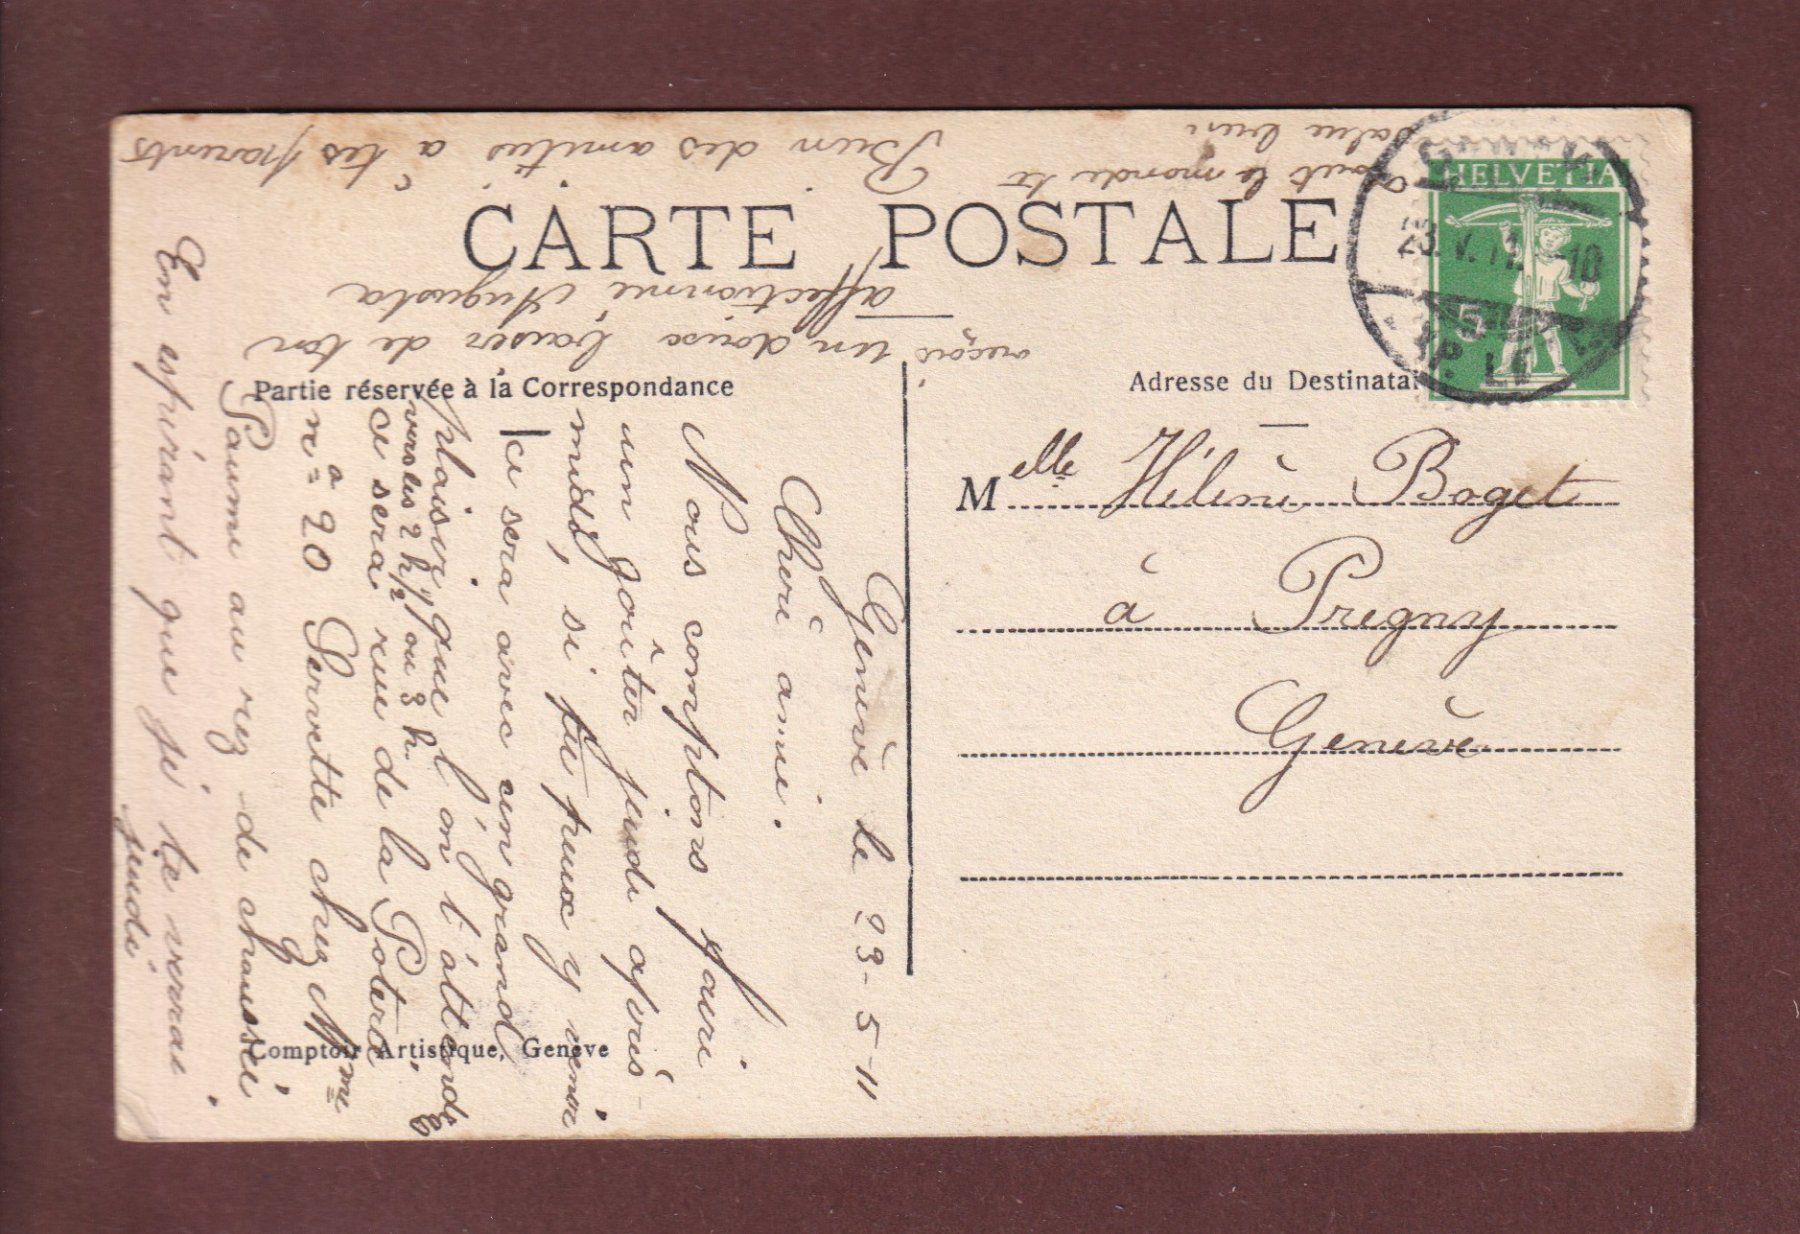 CARTE POSTALE
Partie réservée à la Correspondance
Adresse du Destinatai
HELVETIA
5
23.V.11. 10
M elle Hélène Boget
à Pregny
Genève
Comptoir Artistique, Genève
Genève le 23-5-11
Chère amie.
Nous comptons faire
un goûter jeudi après-
midi, si tu peux y venir
ce sera avec un grand
plaisir que l'on t'attend
vers les 2 h 1/2 ou 3 h.
ce sera rue de la Poterie
nº 20 Servette chez Mme
Paume au rez-de-chaussée
En espérant que je te verrai
jeudi
reçois un doux baiser de ton
affectionnée Augusta
Bien des amitiés à tes parents
tout le monde te
salue bien